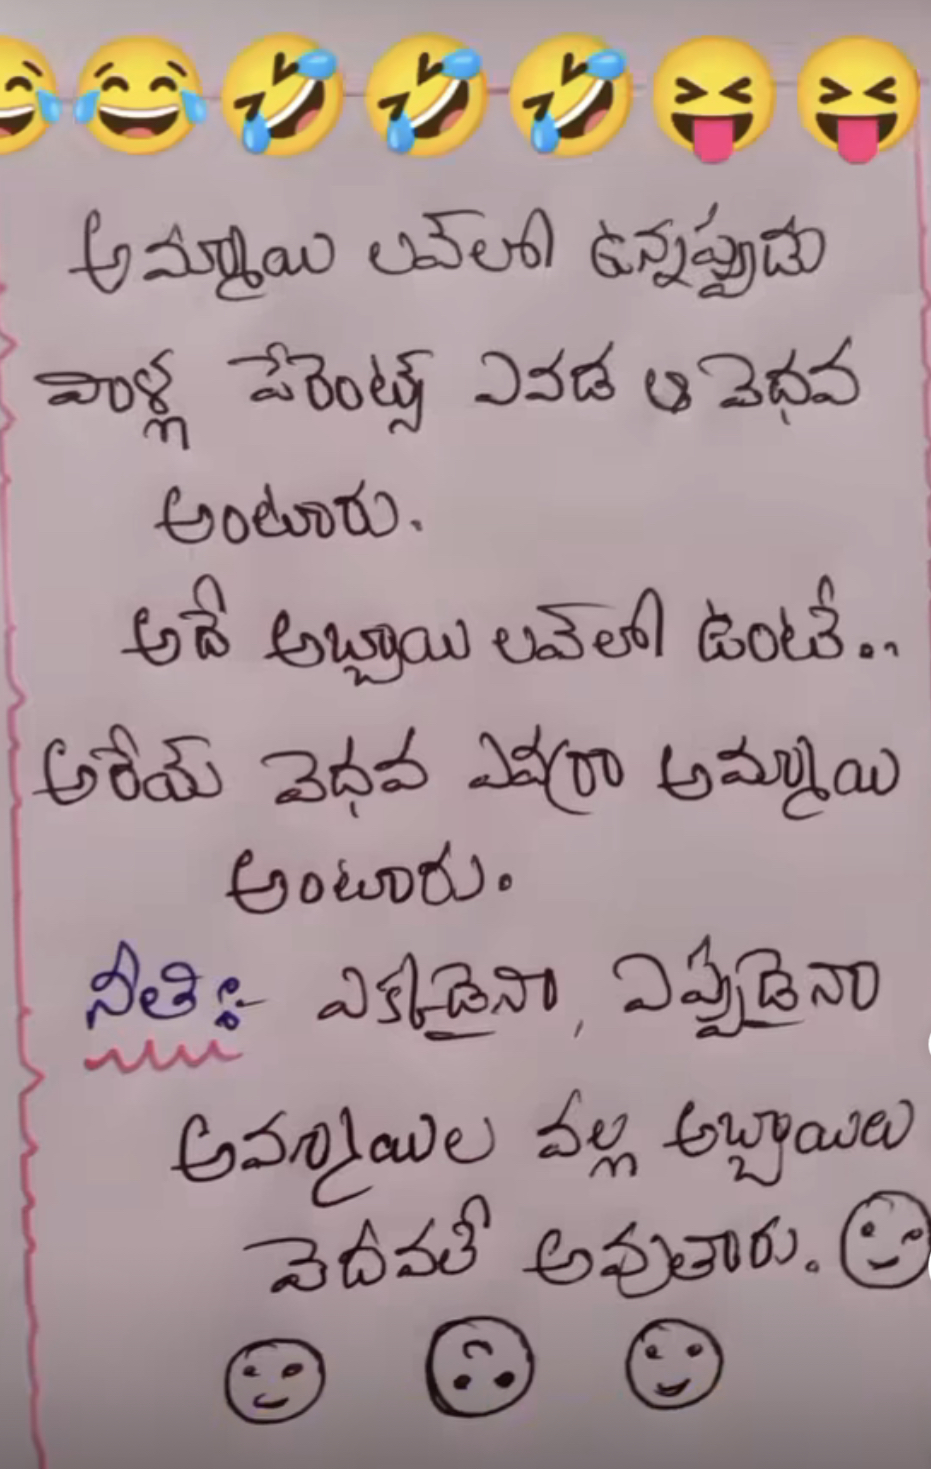 అమ్మాయి లవ్‌లో ఉన్నప్పుడు
వాళ్ళ పేరెంట్స్ ఎవడ ఆ వెధవ
అంటూరు.
అదే అబ్బాయి లవ్‌లో ఉంటే..
అరేయ్ వెధవ ఎవర్రా అమ్మాయి
అంటూరు.
నీతి :- ఎక్కడైనా, ఎప్పుడైనా
అమ్మాయిల వల్ల అబ్బాయిలు
వెదవలే అవుతారు.